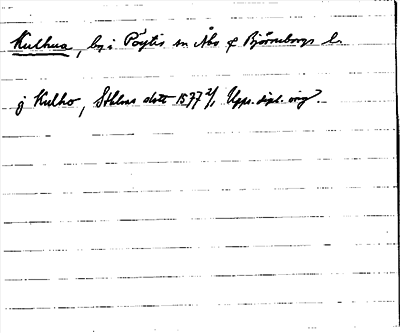 Kulhua, by i Pöytis sn Åbo o Björneborgs l.
j Kulho, Sthlms slott 1577 2/1 Upps. dipl. orig.